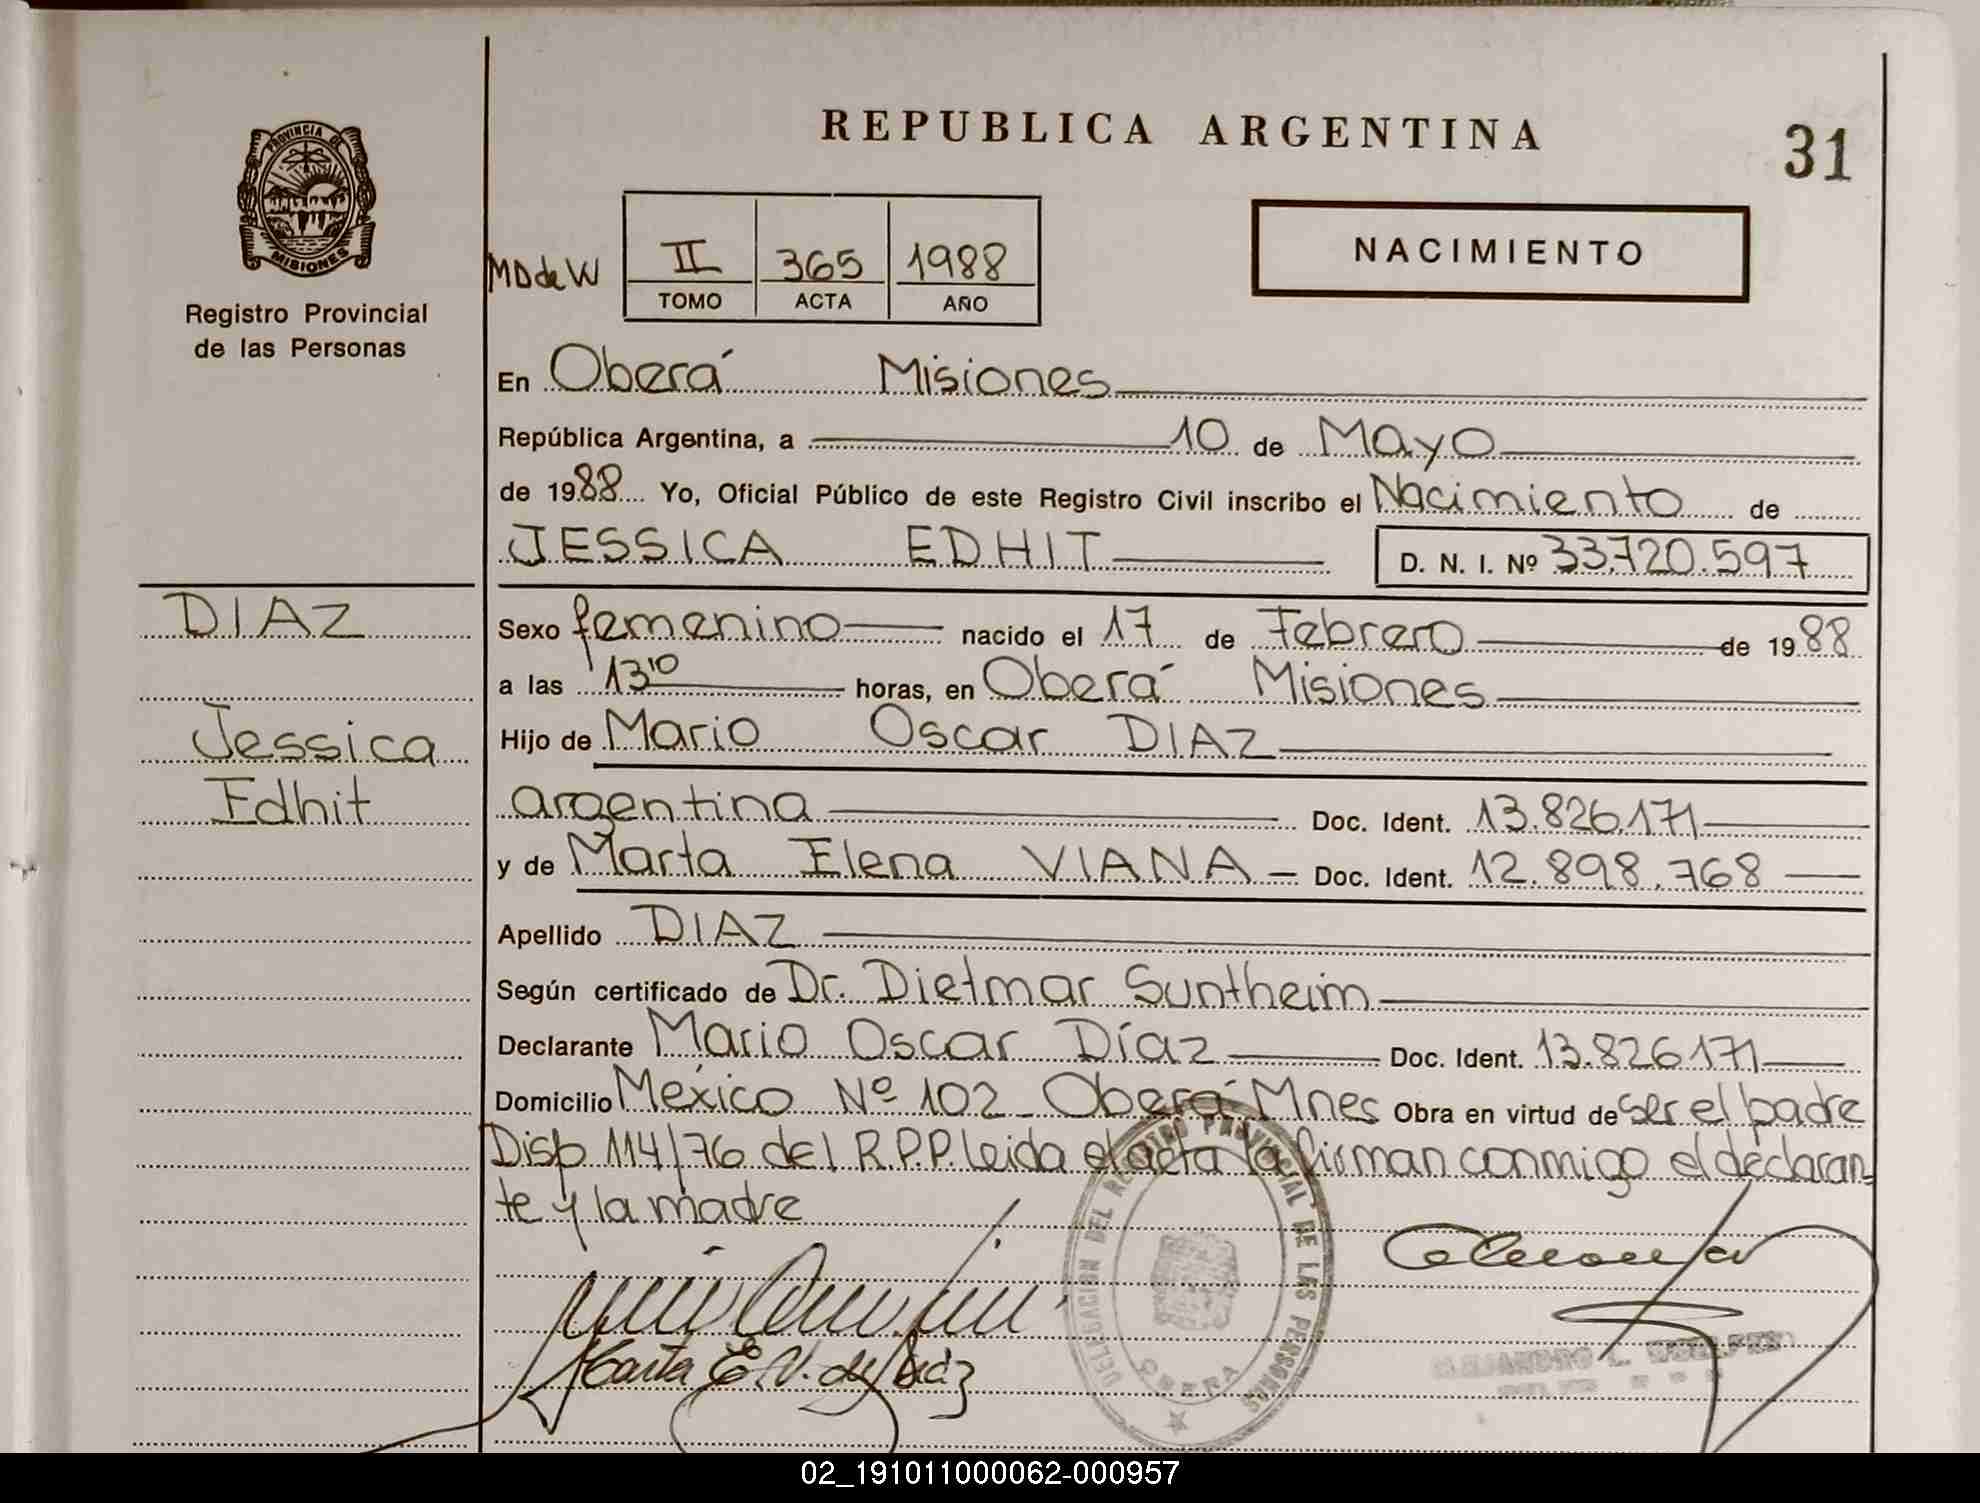 REPUBLICA ARGENTINA
31
PROVINCIA DE
MISIONES
Registro Provincial
de las Personas
MD de W
II 365 1988
TOMO ACTA AÑO
NACIMIENTO
En Oberá Misiones
República Argentina, a 10 de Mayo
de 1988 Yo, Oficial Público de este Registro Civil inscribo el Nacimiento de
JESSICA EDHIT D. N. I. Nº 33.720.597
DIAZ
Jessica
Edhit
Sexo femenino nacido el 17 de Febrero de 1988
a las 13'10 horas, en Oberá Misiones
Hijo de Mario Oscar DIAZ
argentina Doc. Ident. 13.826.171
y de Marta Elena VIANA Doc. Ident. 12.898.768
Apellido DIAZ
Según certificado de Dr. Dietmar Suntheim
Declarante Mario Oscar Díaz Doc. Ident. 13.826171
Domicilio México Nº 102 - Oberá Mnes Obra en virtud de ser el padre
Disp 114/76 del R.P.P. leida el acta la firman conmigo el declaran
te y la madre
DELEGACION DEL REGISTRO PROVINCIAL DE LAS PERSONAS
OBERA
Marta E. V. de Díaz
02_191011000062-000957